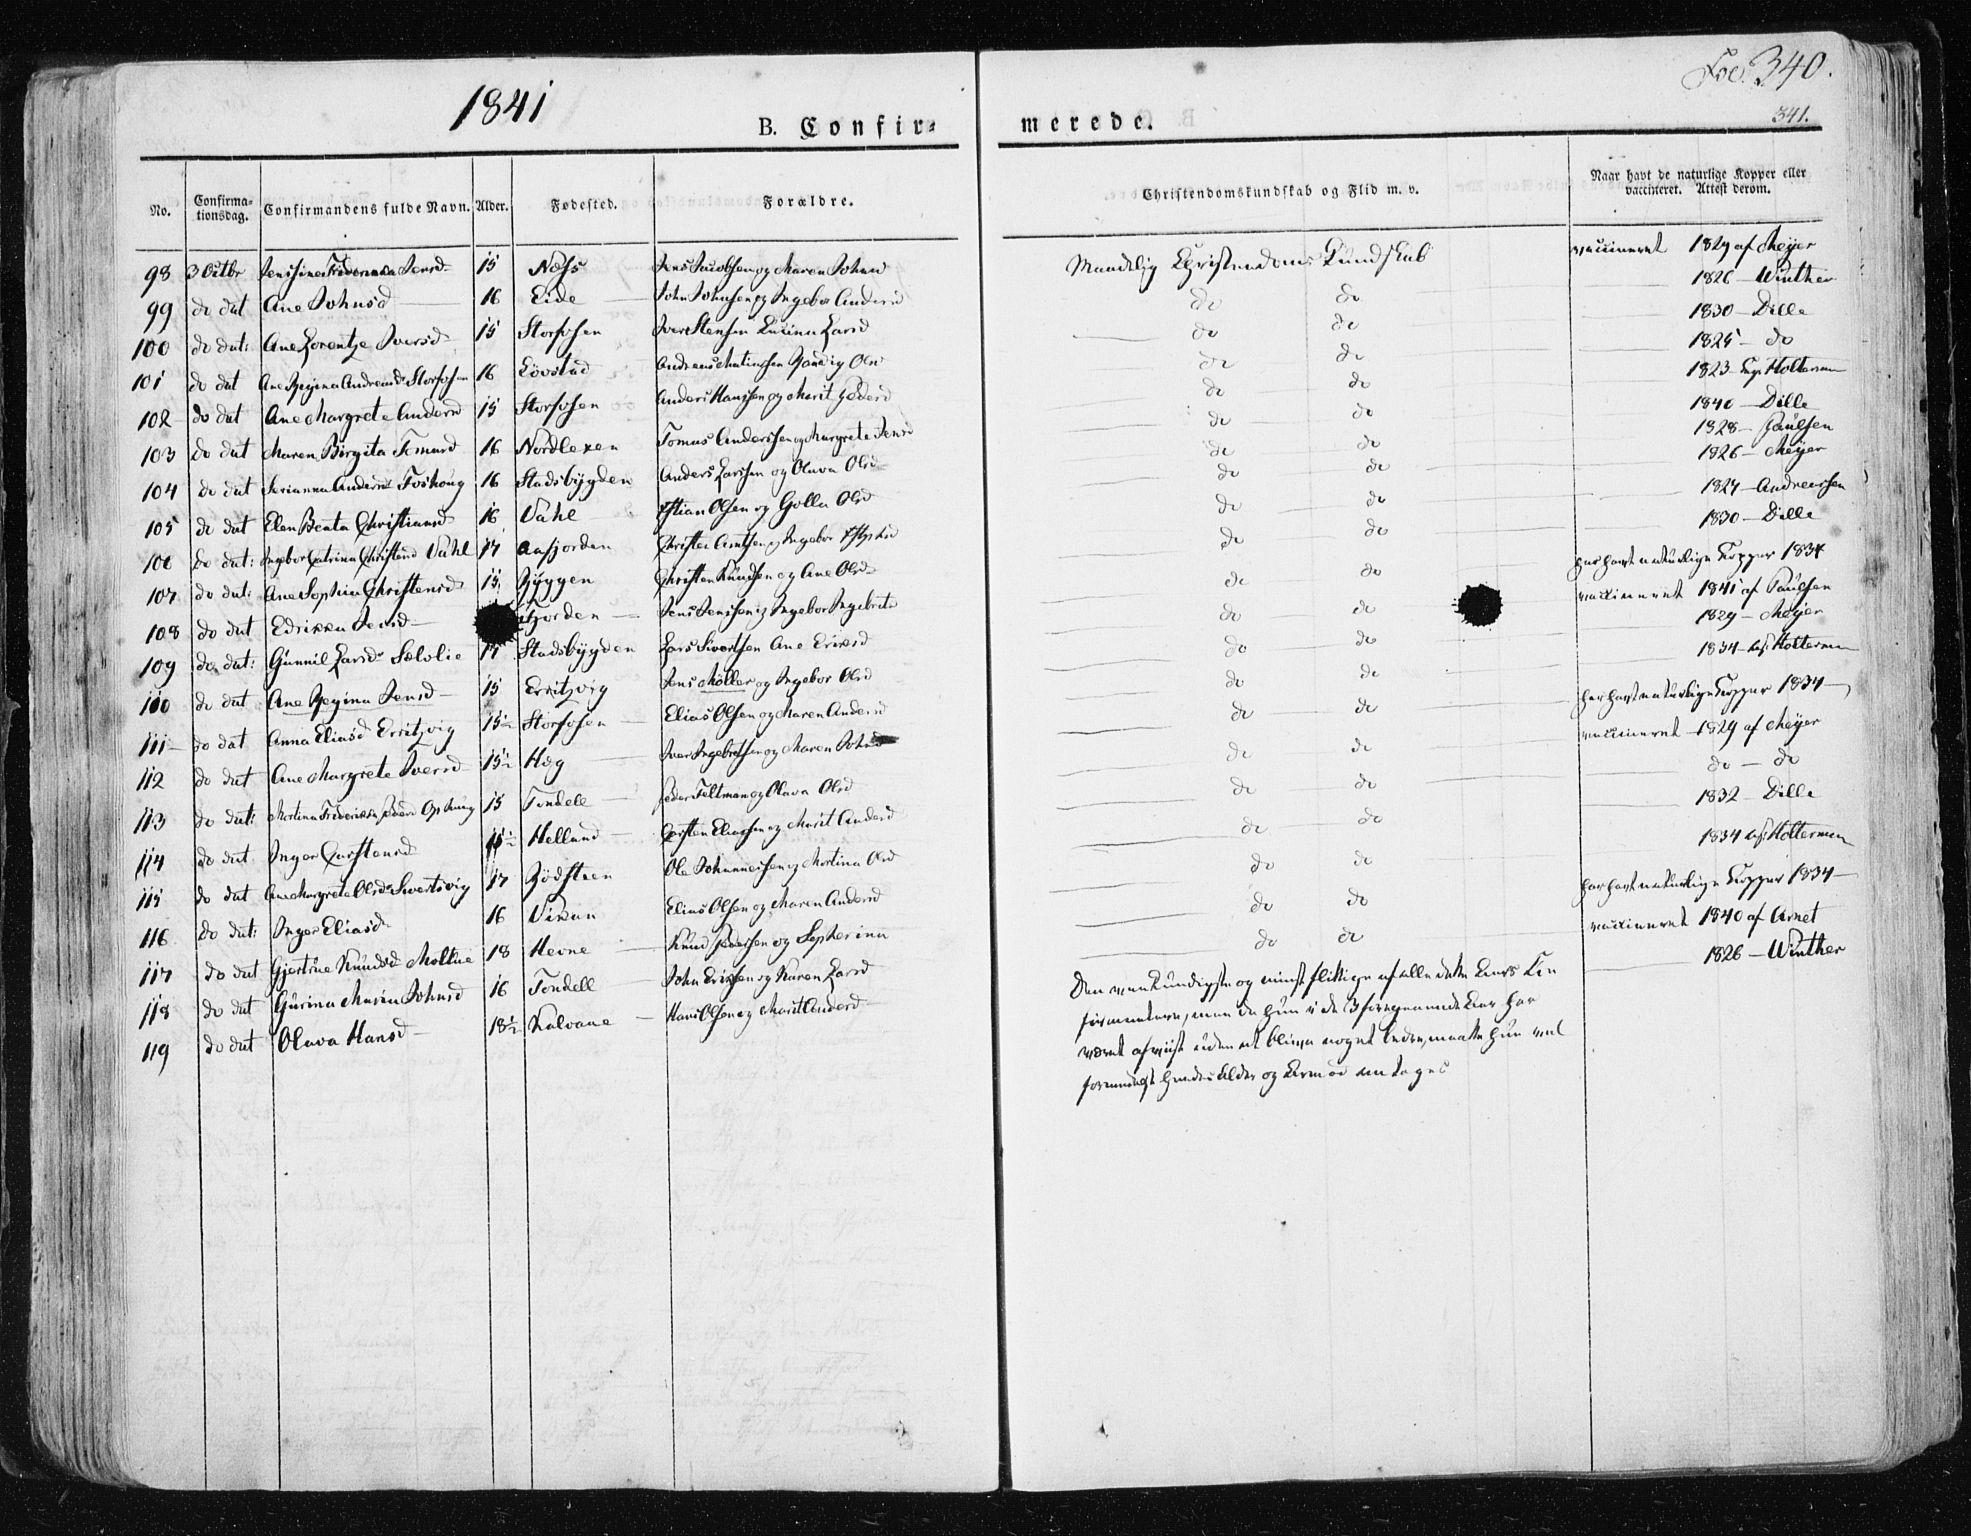 1841
Fol. 340.
341.
B. Confir-
merede.
No.
Confirma-
tionsdag.
Confirmandens fulde Navn.
Alder.
Fødested.
Forældre.
Christendomskundskab og Flid m. v.
Naar havt de naturlige Kopper eller
vaccineret. Attest derom.
98 3 Octbr Jensd 15 Næss Jens Jacobsen og Maren Johnsd Maadelig Christendoms Kundskab vaccineret 1829 af Meÿer
99 do dat Ane Johnsd 16 Eide John Johnsen og Ingebor Andersd do do 1826 — Winther
100 do dat: Ane Lorentze Iversd 15 Storfosen Iver Stensen Lucina Larsd do do 1830 — Dille
101 do dat Ane Regina Andreasd Storfosen 16 Løvstad Andreas Olsd do do 1825 — do
102 do dat Ane Margrete Andersd 15 Storfosen Anders Hansen og Marit Pedersd do do 1823 — Holterman
103 do dat Maren Birgita Tomasd 16 Nordlexen Tomas Anderssen og Margrete Jensd do do 1840 — Dille
104 do dat Andersd Foshoug 16 Stadsbÿgden Anders Larssen og Olava Olsd do do 1828 — Paülsen
105 do dat Elen Beata Christiansd 16 Vahl Olsen og Golla Olsd do do 1826 — Meÿer
106 do dat: Ingebor Catrina Vahl 17 Aafjorden og Ingebor do do 1827 — Andreassen
107 do dat: Ane Sophia Christensd 15 Rÿggen Christen Knüdsen og Ane Olsd do do 1830 — Dille
108 do dat Edrikka Jensd fjorden Jens Jenssen og Ingebor Ingebrets do do har havt naturlige Kopper 1834
109 do dat: Günnil Larsd Sælolie 17 Stadsbÿgden Lars Sivertsen Ane Ericsd do do vaccineret 1841 af Paülsen
110 do dat Ane Regina Jensd 15 Erritzvig Jens Möller og Ingebor Olsd do do 1829 — Meÿer
111 do dat Anna Eliasd Erritzvig 15½ Storfosen Elias Olsen og Maren Andersd do do 1834 — Holterman
112 do dat Ane Margrete Iversd 15½ Hæg Iver Ingebretsen og Maren Johnsd do do har havt naturlige Kopper 1834
113 do dat: Martina 15 Tondell Peder Feltman og Olava Olsd do do vaccineret 1829 af Meÿer
114 do dat Inger Carstensd 15½ Helland Carsten Eliassen og Marit Andersd do do do — do
115 do dat Ane Margrete Olsd Sivertsvig 17 Rödsteen Ole Johannessen og Martina Olsd do do 1832 — Dille
116 do dat: Inger Eliasd 16 Vikan Elias Olsen og Maren Andersd do do 1834 Holterman
117 do dat Gjertrue Knüdsd Moltue 18 Hevne Knüd Pedersen og Sopherina do do har havt naturlige Kopper 1834
118 do dat Gurina Johnsd 16 Tondell John Ericksen og Karen Larsd do do vaccineret 1840 af Arnet
119 do dat Olava Hansd 18½ Kalvaae Hans Olsen og Marit Andersd 1826 — Winther
Den og mindst flittige af alle dette Aars Con
firmantere, men da hun i de 3 foregaaende Aar har
været afviist uden at blive noget bedre, maatte hun ved
hendes Alder og antages